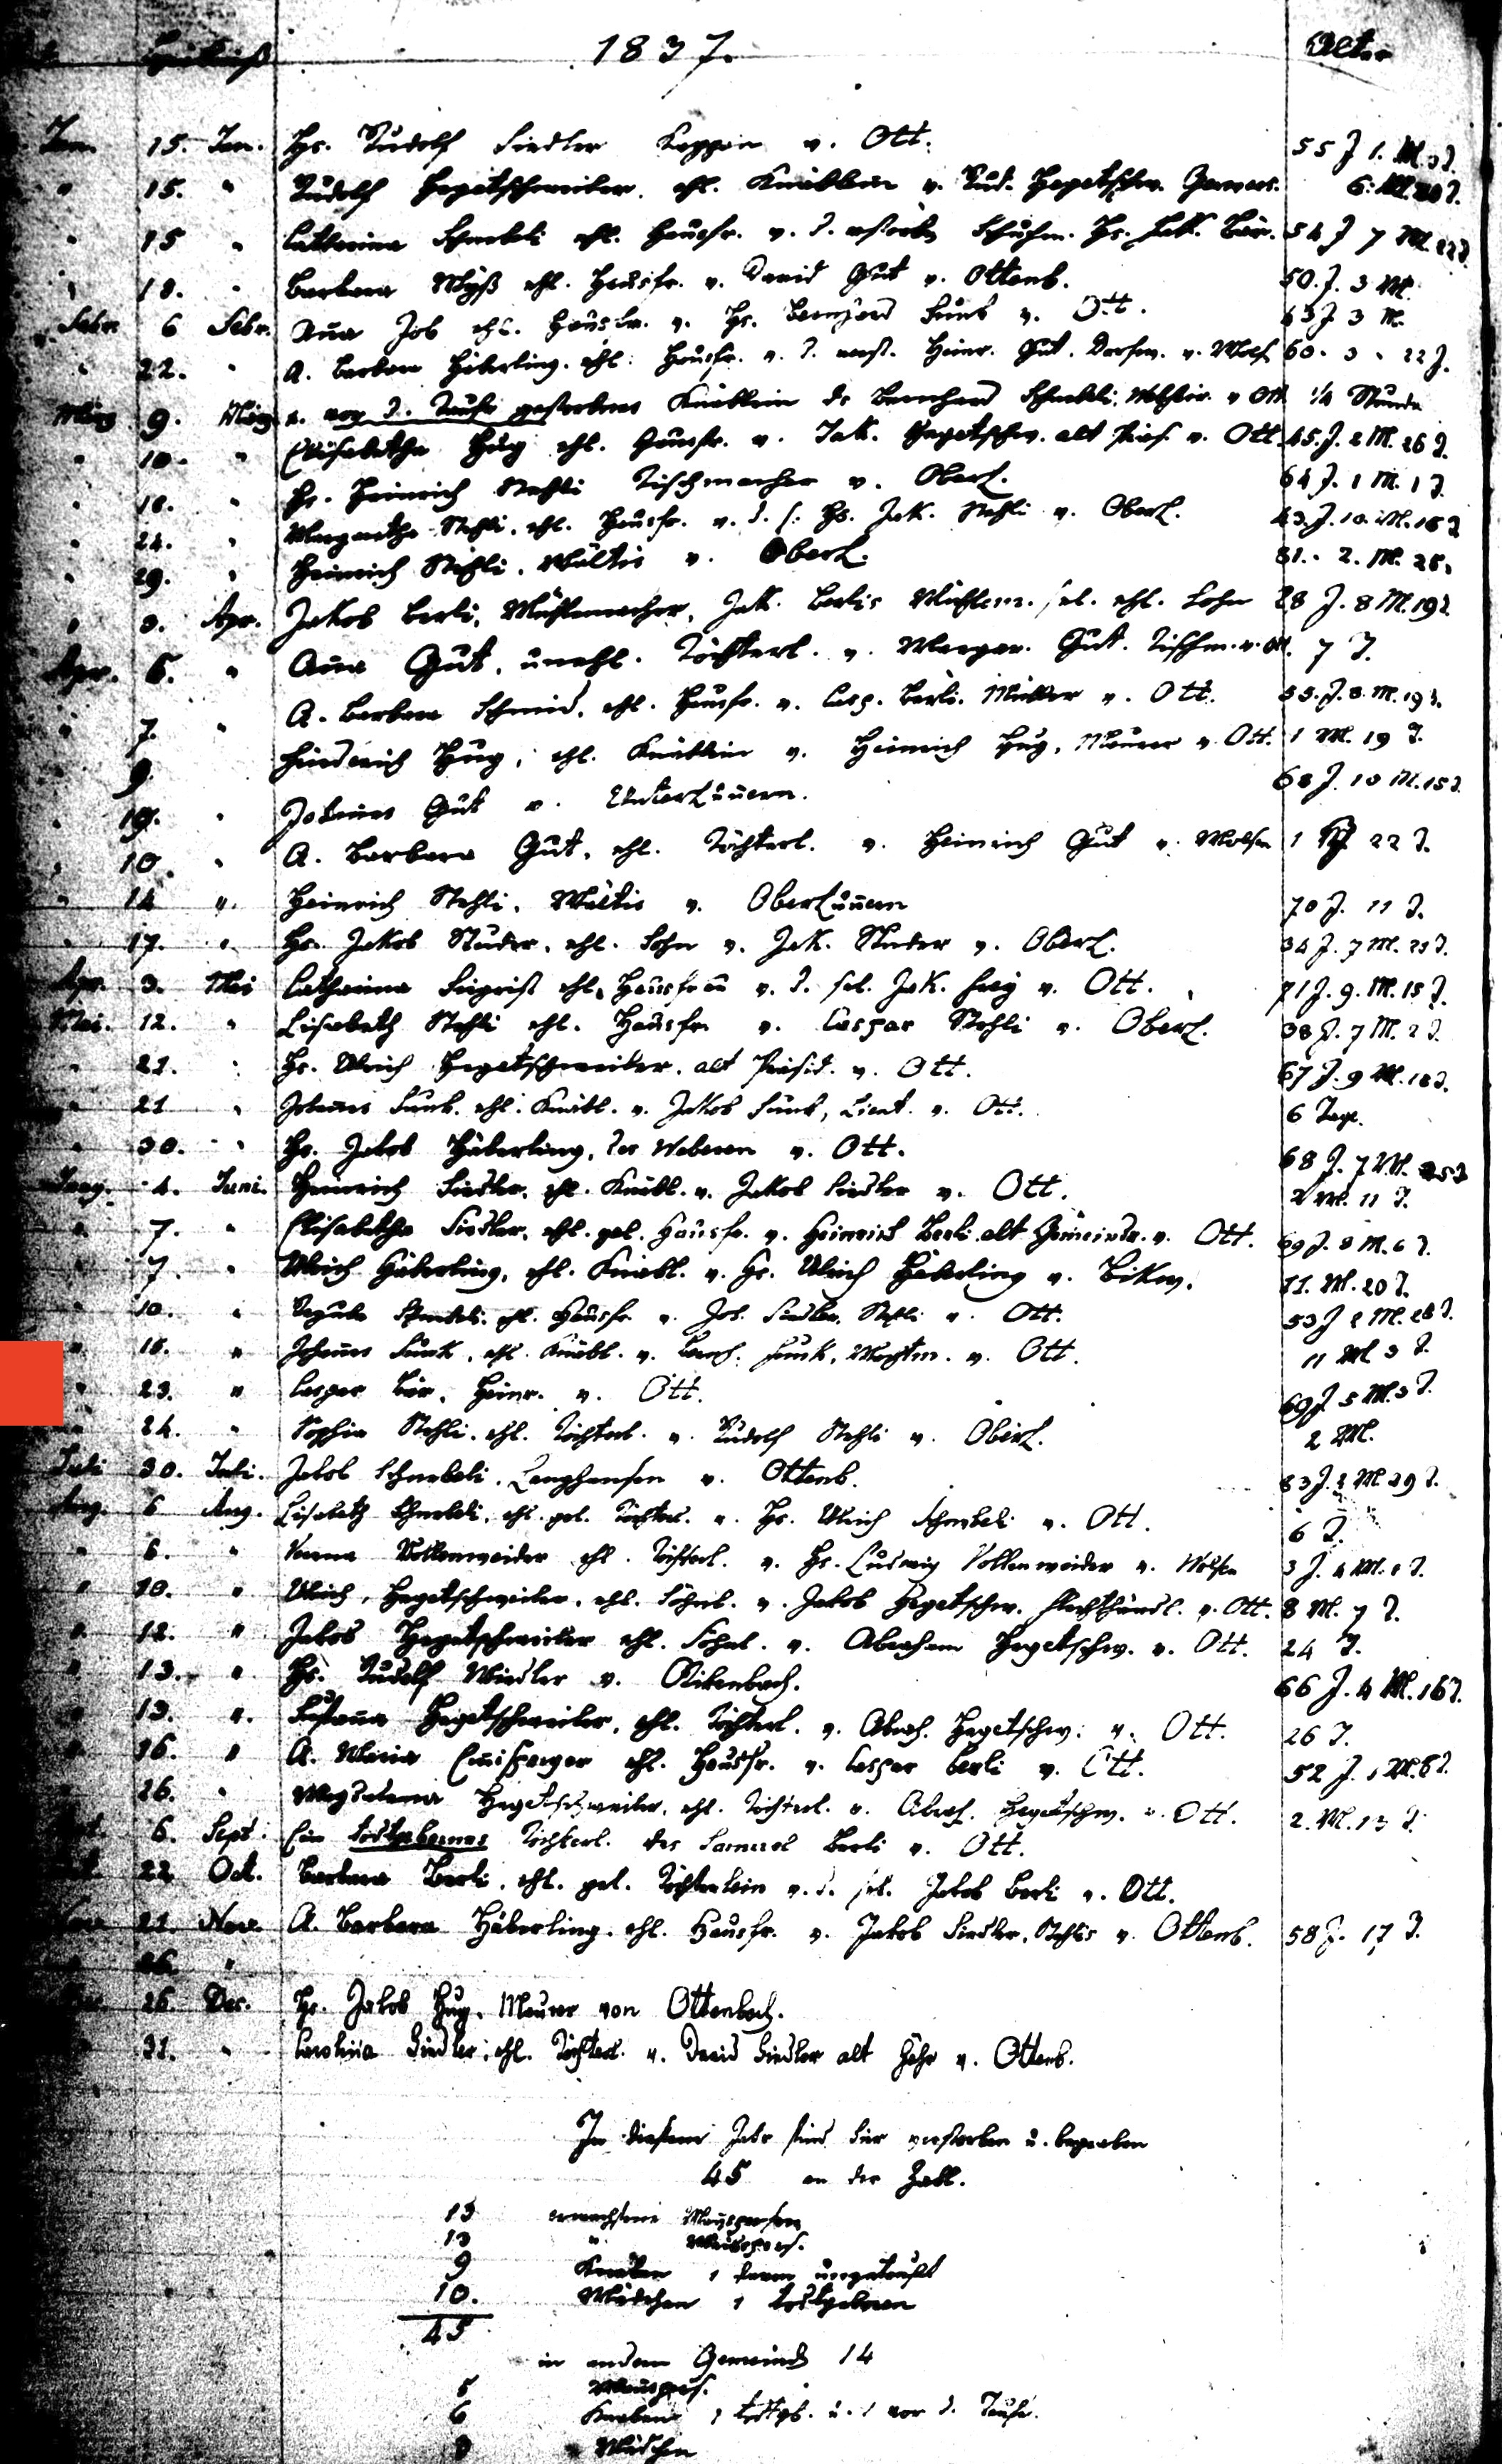 1837. Alter
Jan. 15. Jan. Hs. Rudolf Siedler Keppen v. Ott. 55 J 1. M. 3 T.
" 15. " Rudolf Hegetschweiler. ehl. Knäblein v. Rud. Hegetschw. 6. M. 20 T.
" 15 " Catharina Schnebeli ehl. Hausfr. v. d. verstorb. Schuhm. Hs. Jak. Bär. 54 J 7 M. 22 T.
" 18. " Barbara Wyß ehl. Hausfr. v. David Gut v. Ottenb. 50. J. 3 M.
Febr. 6 Febr. Aña Job ehl. Hausfr. v. Hs. Bernhard Funk v. Ott. 63 J 3 M.
" 22. " A. Barbara Häberling. ehl. Hausfr. v. d. verst. Heinr. Gut. v. Wols. 60. 3. 22 T.
März 9. März. e. vor d. Taufe gestorbenes Knäblein des Bernhard Schnebeli. v. Ott. 1/4 Stunde
" 10. " Elisabetha Hug ehl. Hausfr. v. Jak. Hegetschw. alt Präs. v. Ott. 45. J. 2 M. 26 T.
" 18. Hs. Heinrich Stehli Tischmacher v. Oberl. 64 J. 1 M. 1 T.
" 24. " Margaretha Stehli. ehl. Hausfr. v. d. s. Hs. Jak. Stehli v. Oberl. 43. J. 10. M. 16 T
" 29. " Heinrich Stehli. Wältis v. Oberl. 81. 2. M. 25.
" 3. Apr. Jakob Berli, Mühlemacher, Jak. Berlis Mühlem. sel. ehl. Sohn 28 J. 8 M. 19 T.
Apr. 6. " Aña Gut. unehl. Töchterl. v. Margar. Gut. Tischm. v. Ott. 7 T.
" 7. " A. Barbara Schmid. ehl. Hausfr. v. Casp. Berli. Müller v. Ott. 55. J. 8. M. 19 T.
9. Friederich Hug, ehl. Knäblein v. Heinrich Hug, Maurer v. Ott. 1 M. 19 T.
" 19. " Johañes Gut v. Unterluñern. 68 J. 10 M. 15 T.
" 10. " A. Barbara Gut. ehl. Töchterl. v. Heinrich Gut v. Wolsen 1 J 22 T.
" 14 " Heinrich Stehli. Wältis v. Oberluñern 70 J. 11 T.
" 17. " Hs. Jakob Studer. ehl. Sohn v. Jak. Studer v. Oberl. 34 J. 7 M. 25 T.
Apr. 3. Mai Catharina Sigrist ehl. Hausfrau v. d. sel. Jak. Frey v. Ott. 71 J. 9. M. 15 T.
Mai. 12. " Lisabeth Stehli ehl. Hausfr. v. Caspar Stehli v. Oberl. 38 J. 7 M. 2 T.
" 21. " Hs. Ulrich Hegetschweiler. alt Präsid. v. Ott. 67 J. 9 M. 18 T.
" 21 " Johañes Funk. ehl. Knäbl. v. Jakob Funk, Lieut. v. Ott. 6 Tage.
" 30. " Hs. Jakob Häberling, der Weberen v. Ott. 68 J. 7 M. 25 T
4. Juni. Heinrich Siedler. ehl. Knäbl. v. Jakob Siedler v. Ott. 2 M. 11 T.
" 7. " Elisabetha Siedler. ehl. gel. Hausfr. v. Heinrich Berli alt Gemeindr. v. Ott. 69 J. 8 M. 6 T.
" 7. " Ulrich Häberling. ehl. Knäbl. v. Hs. Ulrich Häberling v. Bikw. 11. M. 20 T.
" 10. " Regula Schnebeli. ehl. Hausfr. v. Joh. Siedler. Stehli v. Ott. 53 J 2 M. 28 T.
" 18. " Johañes Funk, ehl. Knäbl. v. Bernh. Funk, Wachtm. v. Ott. 11 M 3 T.
" 23. " Caspar Bär. Heinr. v. Ott. 69 J 5 M. 3 T.
" 24. " Sophia Stehli. ehl. Töchterl. v. Rudolf Stehli v. Oberl. 2 M.
Juli 30. Juli. Jakob Schnebeli. Langhansen v. Ottenb. 83 J. 2 M. 29 T.
Aug. 6 Aug. Lisabeth Schnebeli. ehl. gel. Töchterl. v. Hs. Ulrich Schnebeli v. Ott. 6 T.
" 6. " Verena Vollenweider ehl. Töchterl. v. Hs. Ludwig Vollenweider v. Wolsen 3 J. 4 M. 2 T.
" 10. " Ulrich, Hegetschweiler. ehl. Söhnl. v. Jakob Hegetschw. v. Ott. 8 M. 7 T.
" 12. " Jakob Hegetschweiler ehl. Söhnl. v. Abraham Hegetschw. v. Ott. 24 T.
" 13. " Hs. Rudolf Wiedler v. Rikenbach. 66 J. 4 M. 16 T.
" 13. " Susaña Hegetschweiler. ehl. Töchterl. v. Abrah. Hegetschw. v. Ott. 26 T.
" 16. " A. Maria ehl. Hausfr. v. Caspar Berli v. Ott. 52 J. 1 M. 8 T.
26. " Magdalena Hegetschweiler. ehl. Töchterl. v. Abrah. Hegetschw. v. Ott. 2. M. 13 T.
6. Sept. Ein todtgebornes Töchterl. des Samuel Berli v. Ott.
22 Oct. Barbara Berli. ehl. gel. Töchterlein v. d. sel. Jakob Berli v. Ott.
21. Nov. A. Barbara Häberling. ehl. Hausfr. v. Jakob Siedler. Stehlis v. Ottenb. 58 J. 17 T.
26. "
26. Dec. Hs. Jakob Hug. Maurer von Ottenbach.
31. " Carolina Siedler. ehl. Töchterl. v. David Siedler alt v. Ottenb.
In diesem Jahr sind hier verstorben u. begraben
45 an der Zahl.
13 erwachsene Mañspersonen
13 " Weibspers.
9 Knaben 1 davon ungetauft
10. Mädchen 1 todtgeboren
45
in andern Gemeinds 14
5
6 Knaben 1 todtgb. u. 1 vor d. Taufe.
3 Mädchen